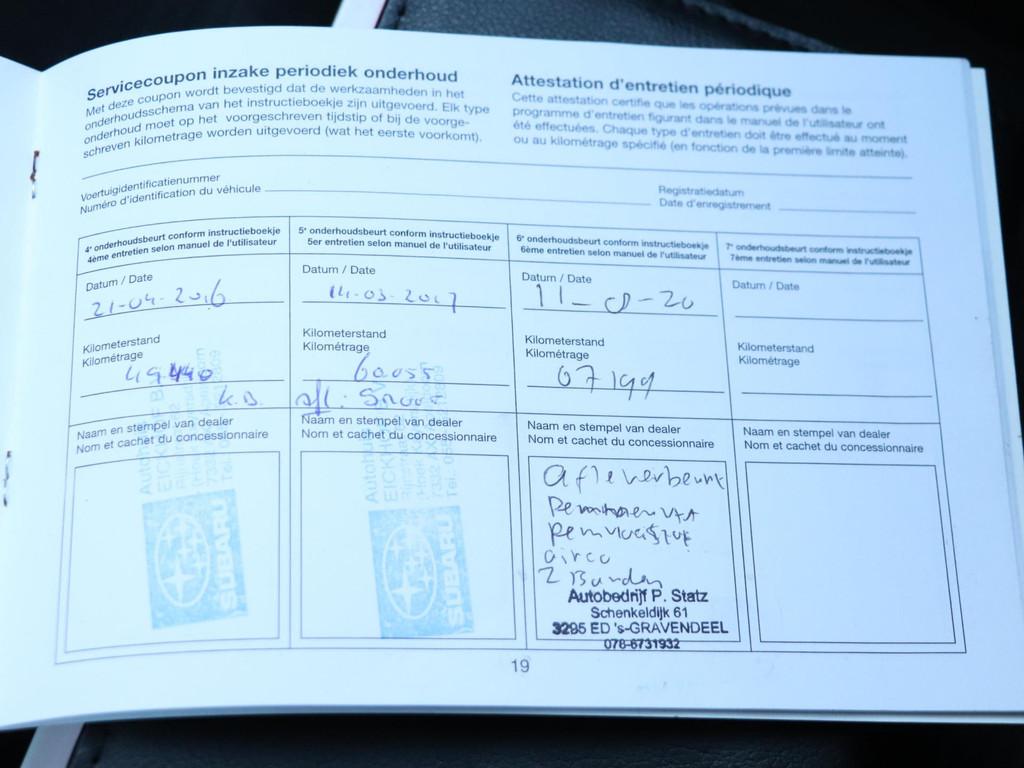 Servicecoupon inzake periodiek onderhoud
Met deze coupon wordt bevestigd dat de werkzaamheden in het
onderhoudsschema van het instructieboekje zijn uitgevoerd. Elk type
onderhoud moet op het voorgeschreven tijdstip of bij de voorge-
schreven kilometrage worden uitgevoerd (wat het eerste voorkomt).
Attestation d'entretien périodique
Cette attestation certifie que les opérations prévues dans le
programme d'entretien figurant dans le manuel de l'utilisateur ont
été effectuées. Chaque type d'entretien doit être effectué au moment
ou au kilométrage spécifié (en fonction de la première limite atteinte).
Voertuigidentificatienummer
Numéro d'identification du véhicule
Registratiedatum
Date d'enregistrement
4e onderhoudsbeurt conform instructieboekje
4ème entretien selon manuel de l'utilisateur
Datum / Date
21-04-2016
Kilometerstand
Kilométrage
49440
K.D.
Naam en stempel van dealer
Nom et cachet du concessionnaire
SUBARU
5e onderhoudsbeurt conform instructieboekje
5er entretien selon manuel de l'utilisateur
Datum / Date
14-03-2017
Kilometerstand
Kilométrage
60055
Naam en stempel van dealer
Nom et cachet du concessionnaire
SUBARU
6e onderhoudsbeurt conform instructieboekje
6ème entretien selon manuel de l'utilisateur
Datum / Date
Kilometerstand
Kilométrage
67199
Naam en stempel van dealer
Nom et cachet du concessionnaire
afleverbeurt
Remvloeistof
airco
2 Banden
Autobedrijf P. Statz
Schenkeldijk 61
3295 ED 's-GRAVENDEEL
078-6731932
7e onderhoudsbeurt conform instructieboekje
7ème entretien selon manuel de l'utilisateur
Datum / Date
Kilometerstand
Kilométrage
Naam en stempel van dealer
Nom et cachet du concessionnaire
19